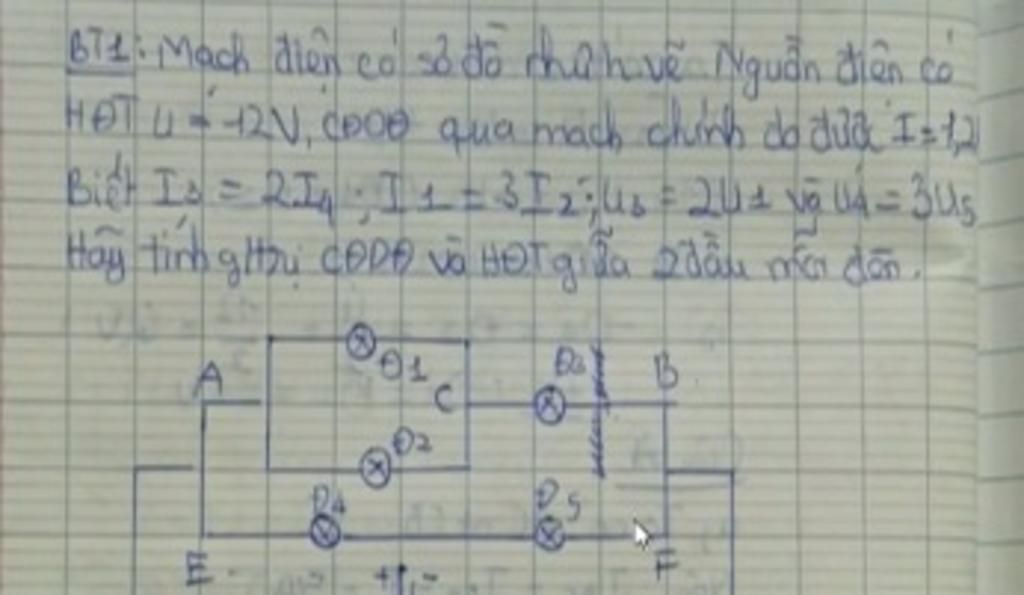 BT1: Mạch điện có sơ đồ như h.vẽ Nguồn điện có
HĐT U = 12V, CĐDĐ qua mạch chính đo được I = 1,2
Biết I3 = 2I4 ; I1 = 3I2 ; U3 = 2U1 và U4 = 3U5
Hãy tính gtrị CĐDĐ và HĐT giữa 2 đầu mỗi đèn.
Đ1
A
Đ3
B
C
Đ2
Đ4
Đ5
E
F
+ -